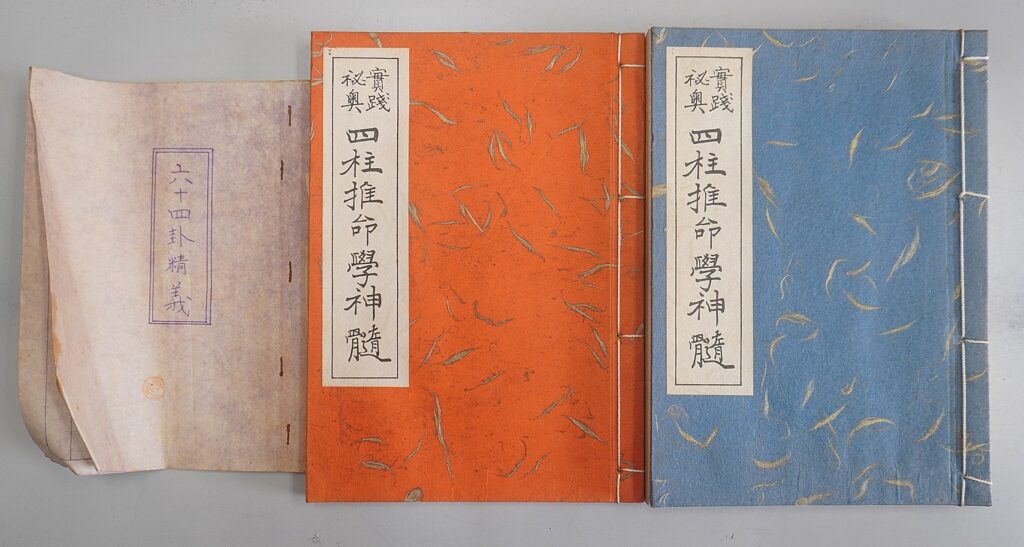 六十四卦精義
實踐
祕奥
四柱推命學神髓
實踐
祕奥
四柱推命學神髓